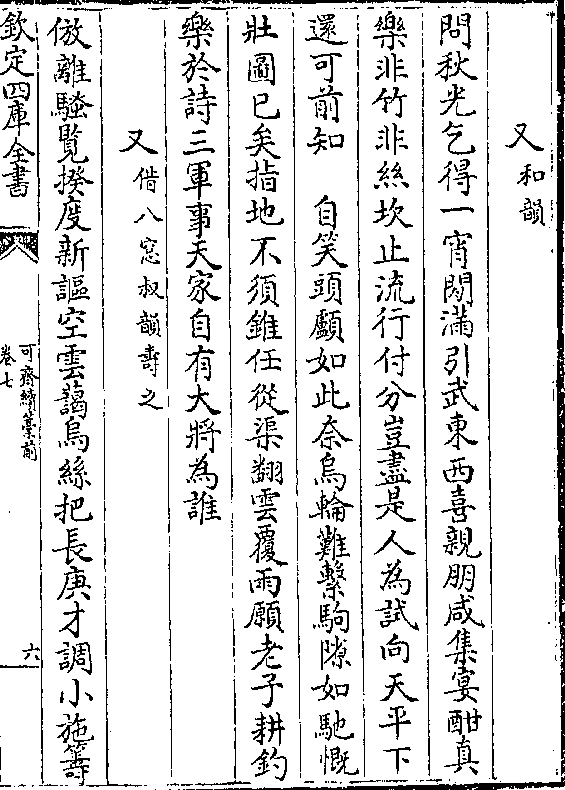 又和韻
問秋光乞得一宵閑滿引武東西喜親朋咸集宴酣真
樂非竹非絲坎止流行付分豈盡是人為試向天平下
還可前知　自笑頭顱如此奈烏輪難繫駒隙如馳慨
壯圖已矣指地不須錐任從渠翻雲覆雨願老子耕釣
樂於詩三軍事天家自有大將為誰
又借八窓叔韻壽之
倣離騷覽揆度新謳空雲藹烏絲把長庚才調小施籌
欽定四庫全書
可齋續藁前
卷七
六